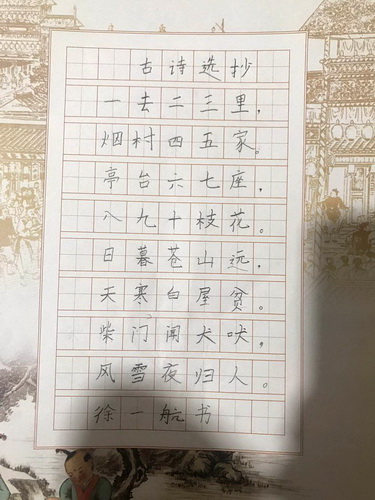 古诗选抄
一去二三里，
烟村四五家。
亭台六七座，
八九十枝花。
日暮苍山远，
天寒白屋贫。
柴门闻犬吠，
风雪夜归人。
徐一航书